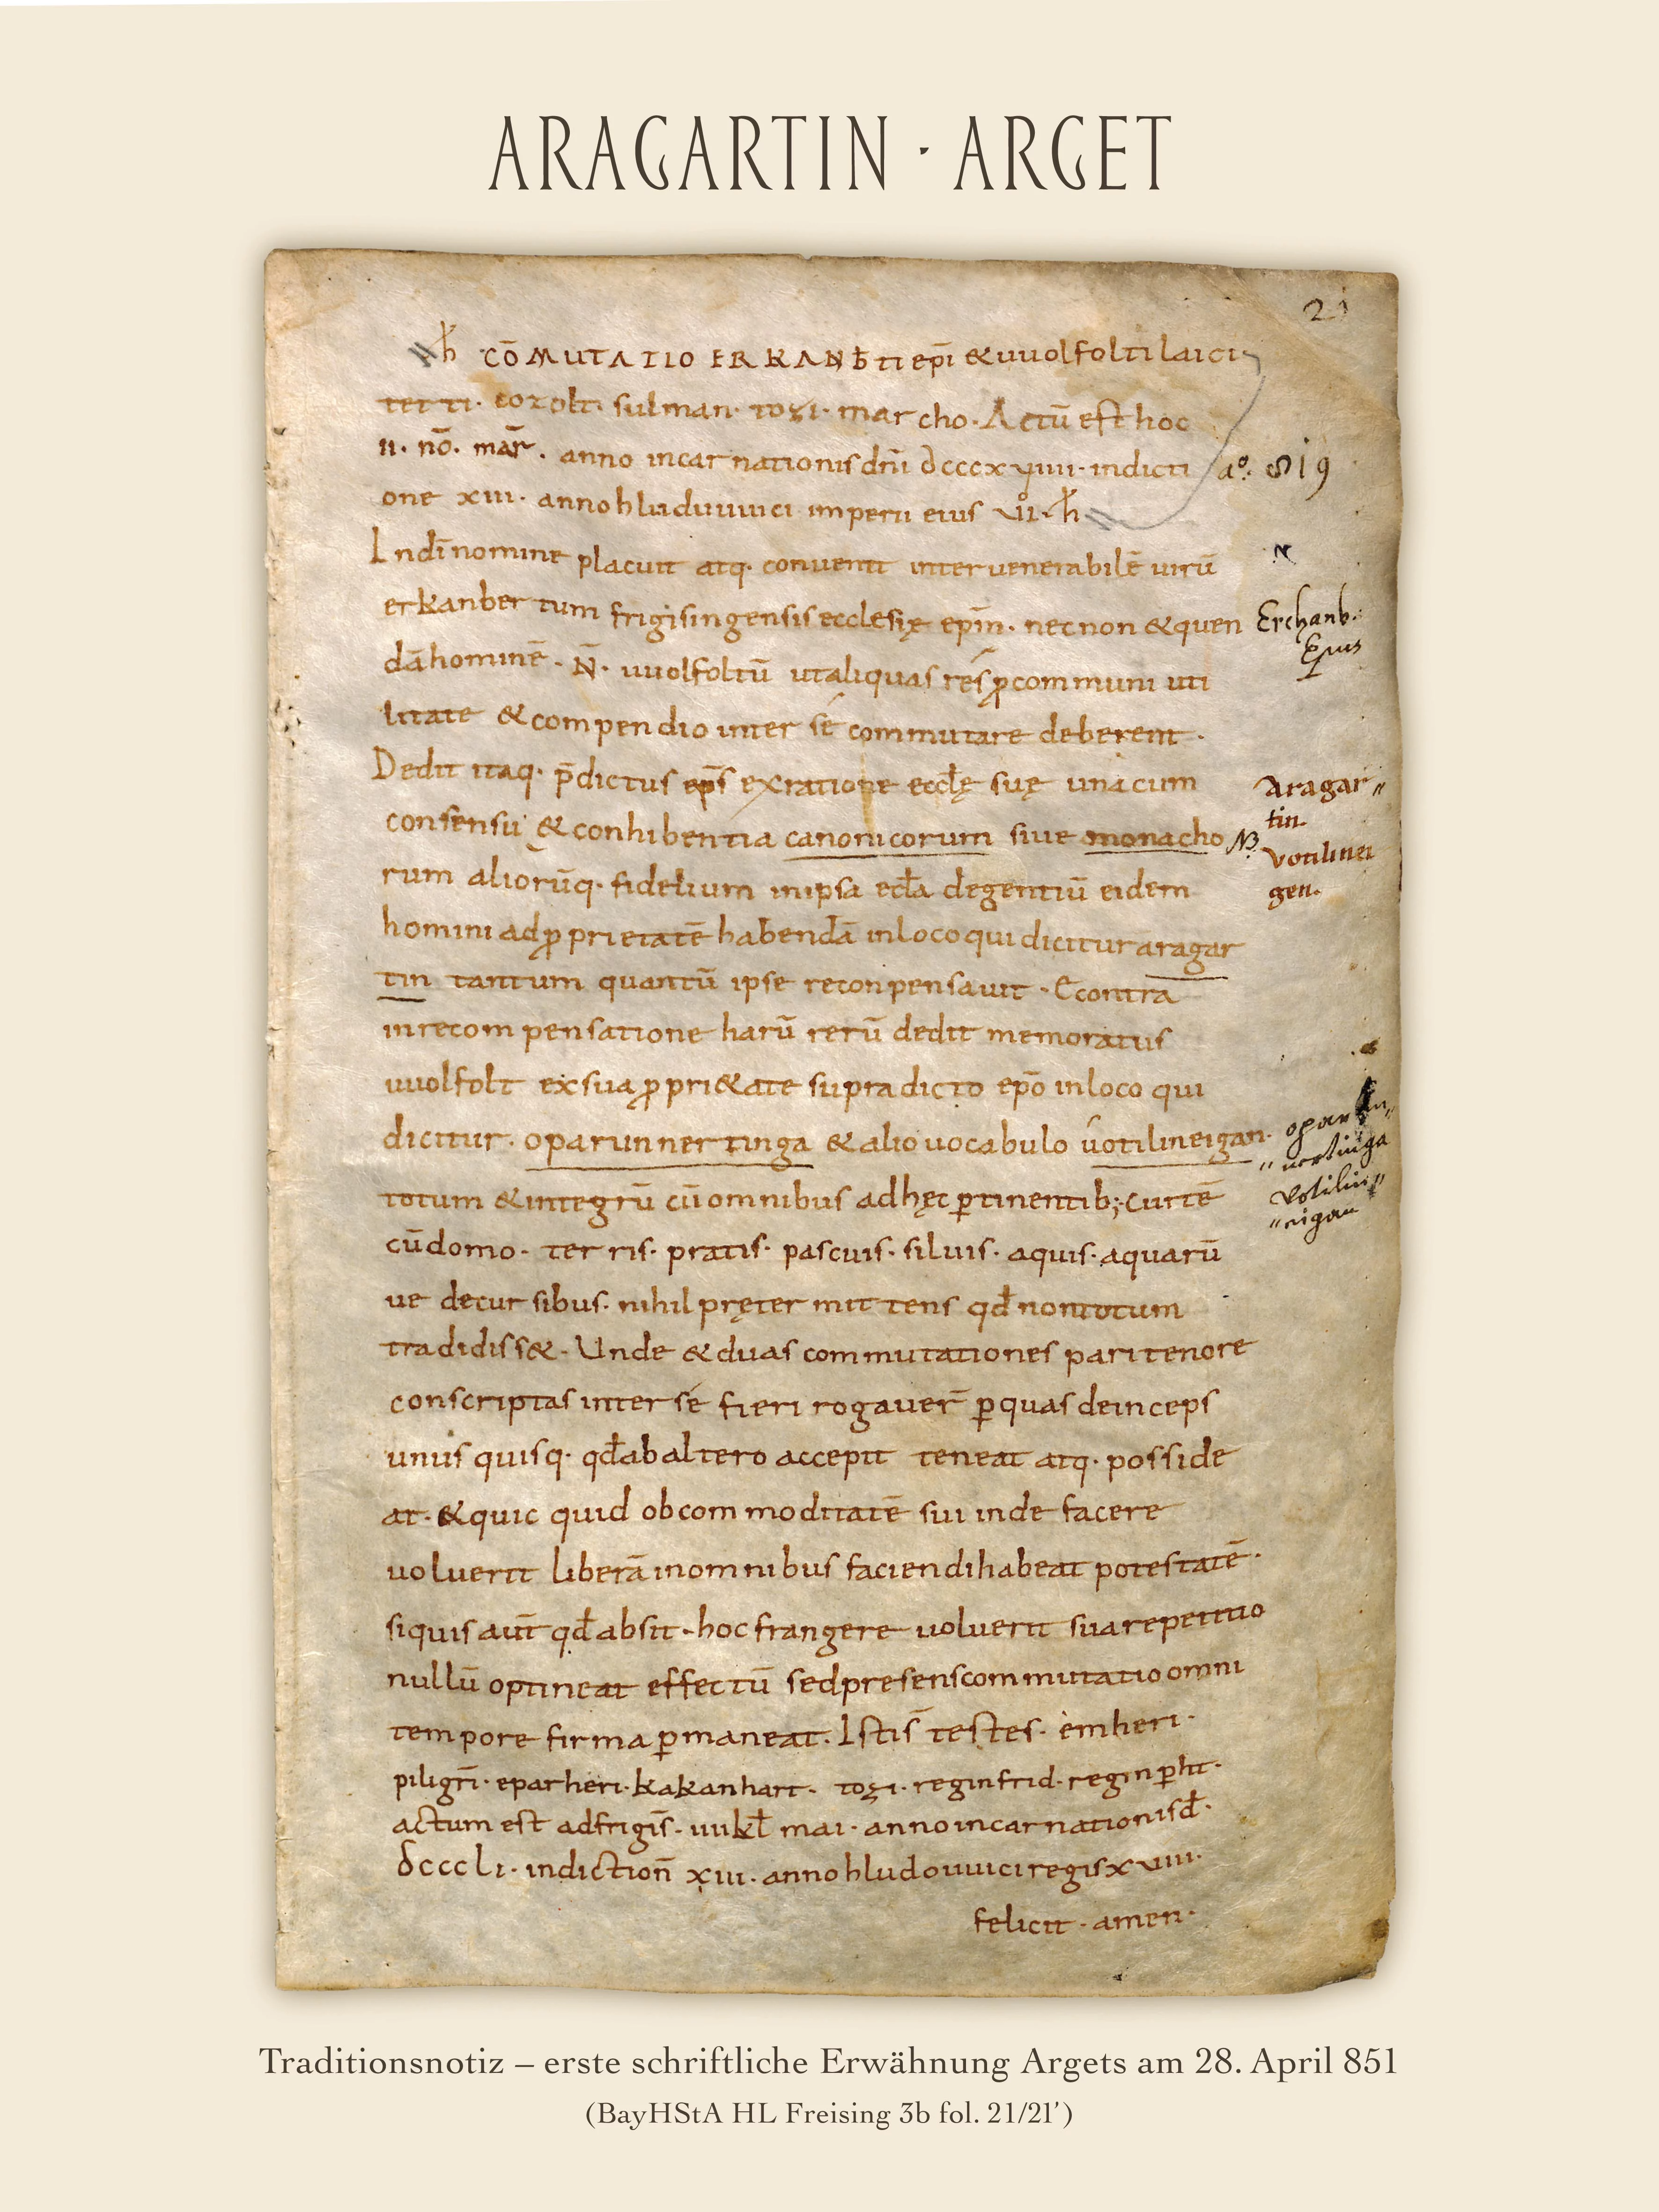 ARAGARTIN · ARGET
21
h COMUTATIO ERKANBti epi & uuolfolti laici
tetti. cozolt. sulman. tozi. marcho. Actū est hoc
ii. nō. mār. anno incarnationis dn̄i dcccxuiiii. indicti
aº. 819
one xiii. anno hludouuici imperii eius uii. h
In dī nomine placuit atq. conuenit inter uenerabilē uirū
N
erkanbertum frigisingensis ecclesię ep̄m. necnon & quen
Erchanb.
Ep̄us
dā hominē. N̄. uuolfoltū ut aliquas res ꝓ communi uti
litate & compendio inter sé commutare deberent.
Dedit itaq. p̄dictus ep̄s ex ratione eccłę suę una cum
Aragar„
tin.
consensu & conhibentia canonicorum siue monacho
NB.
Votilinei
gen.
rum aliorūq. fidelium in ipsa ecła degentiū eidem
homini ad ꝓprietatē habendā in loco qui dicitur aragar
tin tantum quantū ipse reconpensauit. Econtra
in recompensatione harū rerū dedit memoratus
uuolfolt ex sua ꝓpri&ate supradicto ep̄o in loco qui
dicitur. oparunnertinga & alio uocabulo uotilineigan.
oparun„
„nertinga
Votilin„
„eigan
totum & integrū cū omnibus ad hęc ꝑtinentib; curtē
cū domo. terris. pratis. pascuis. siluis. aquis. aquarū
ue decursibus. nihil pręter mittens qđ non totum
tradidiss&. Unde & duas commutationes pari tenore
conscriptas inter sé fieri rogauer̄ ꝑ quas deinceps
unusquisq. qđ ab altero accepit teneat atq. posside
at. & quicquid ob commoditatē sui inde facere
uoluerit liberā in omnibus faciendi habeat potestatē.
si quis aūt qđ absit. hoc frangere uoluerit sua repetitio
nullū optineat effectū sed presens commutatio omni
tempore firma ꝑmaneat. Istis testes. emheri.
piligrī. eparheri. kakanhart. tozi. reginfrid. reginꝑht.
actum est ad frigis̄. iiii kł mai. anno incarnationis đ.
dcccli. indiction̄ xiii. anno hludouuici regis xuiiii.
felicit. amen.
Traditionsnotiz – erste schriftliche Erwähnung Argets am 28. April 851
(BayHStA HL Freising 3b fol. 21/21’)